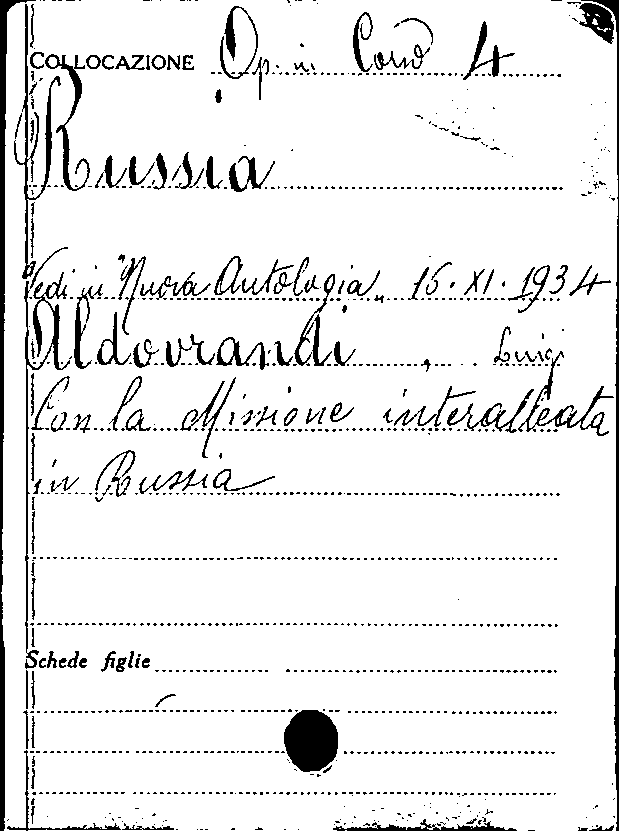 COLLOCAZIONE Op. in Corso 4
Russia
Vedi in "Nuova Antologia" 16. XI. 1934
Aldovrandi, Luigi
Con la Missione interalleata
in Russia
Schede figlie